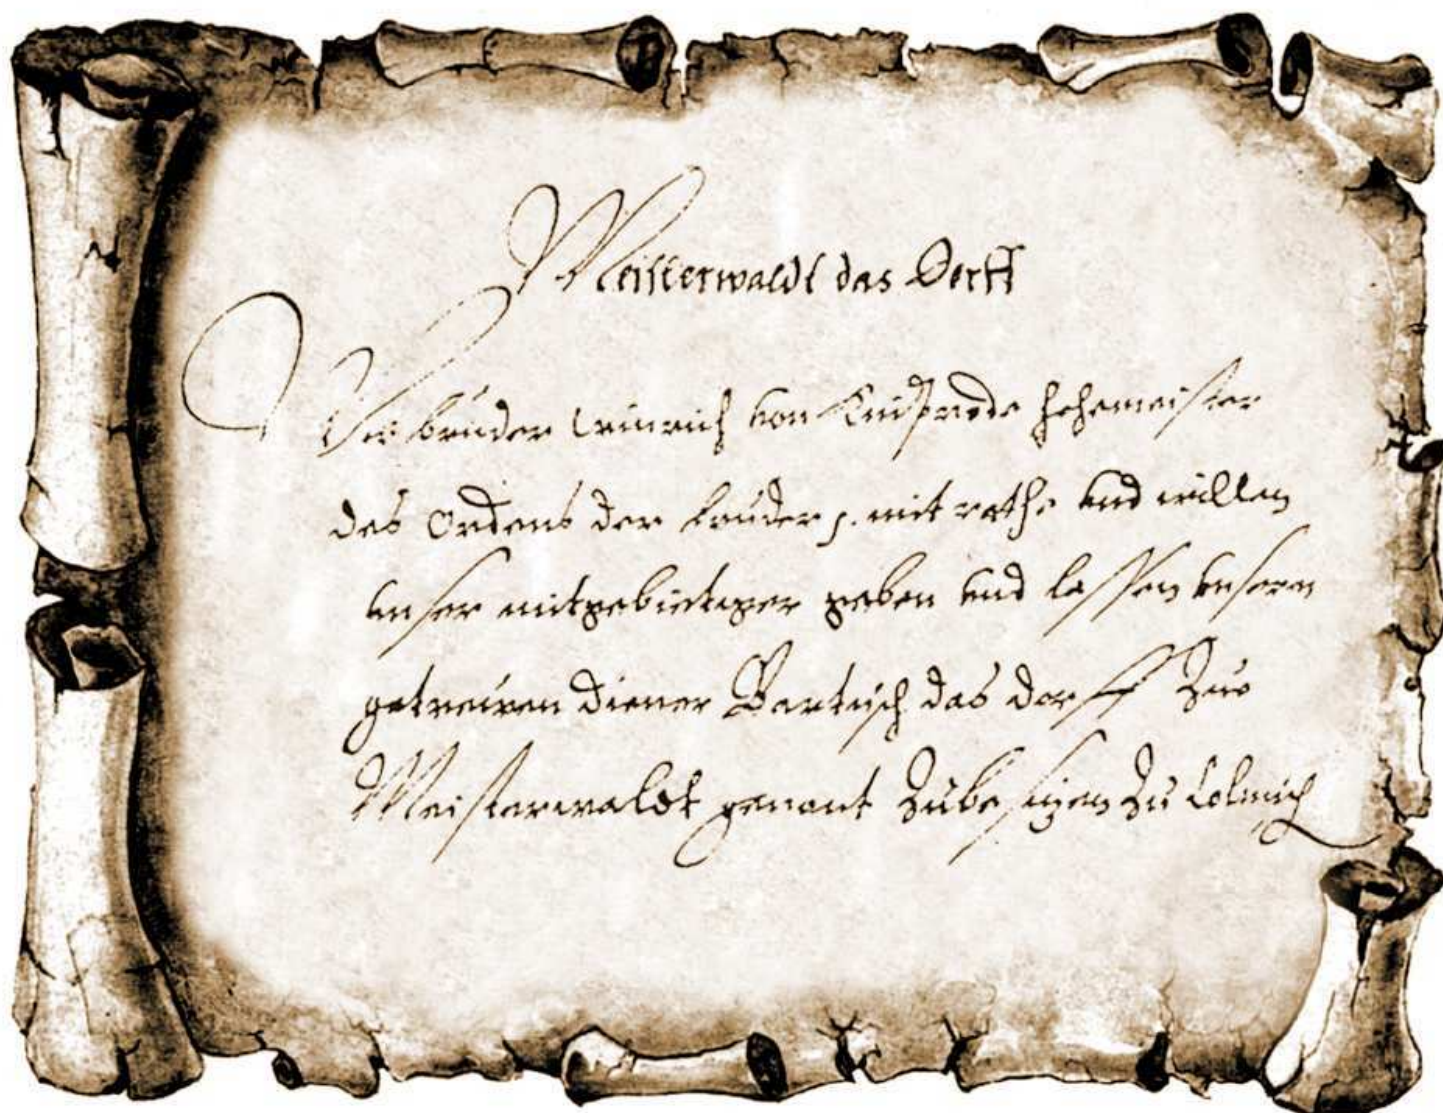 Meisterwaldt das Dorff
Wir bruder Weinrich von Kniprode hohemeister
des Ordens der bruder p. mit rathe vnd willen
vnser mitgebietiger geben vnd lassen vnserm
getreuwen diener Bartusch das dorff zue
Meisterwaldt genant zubesitzen zu Colmisch